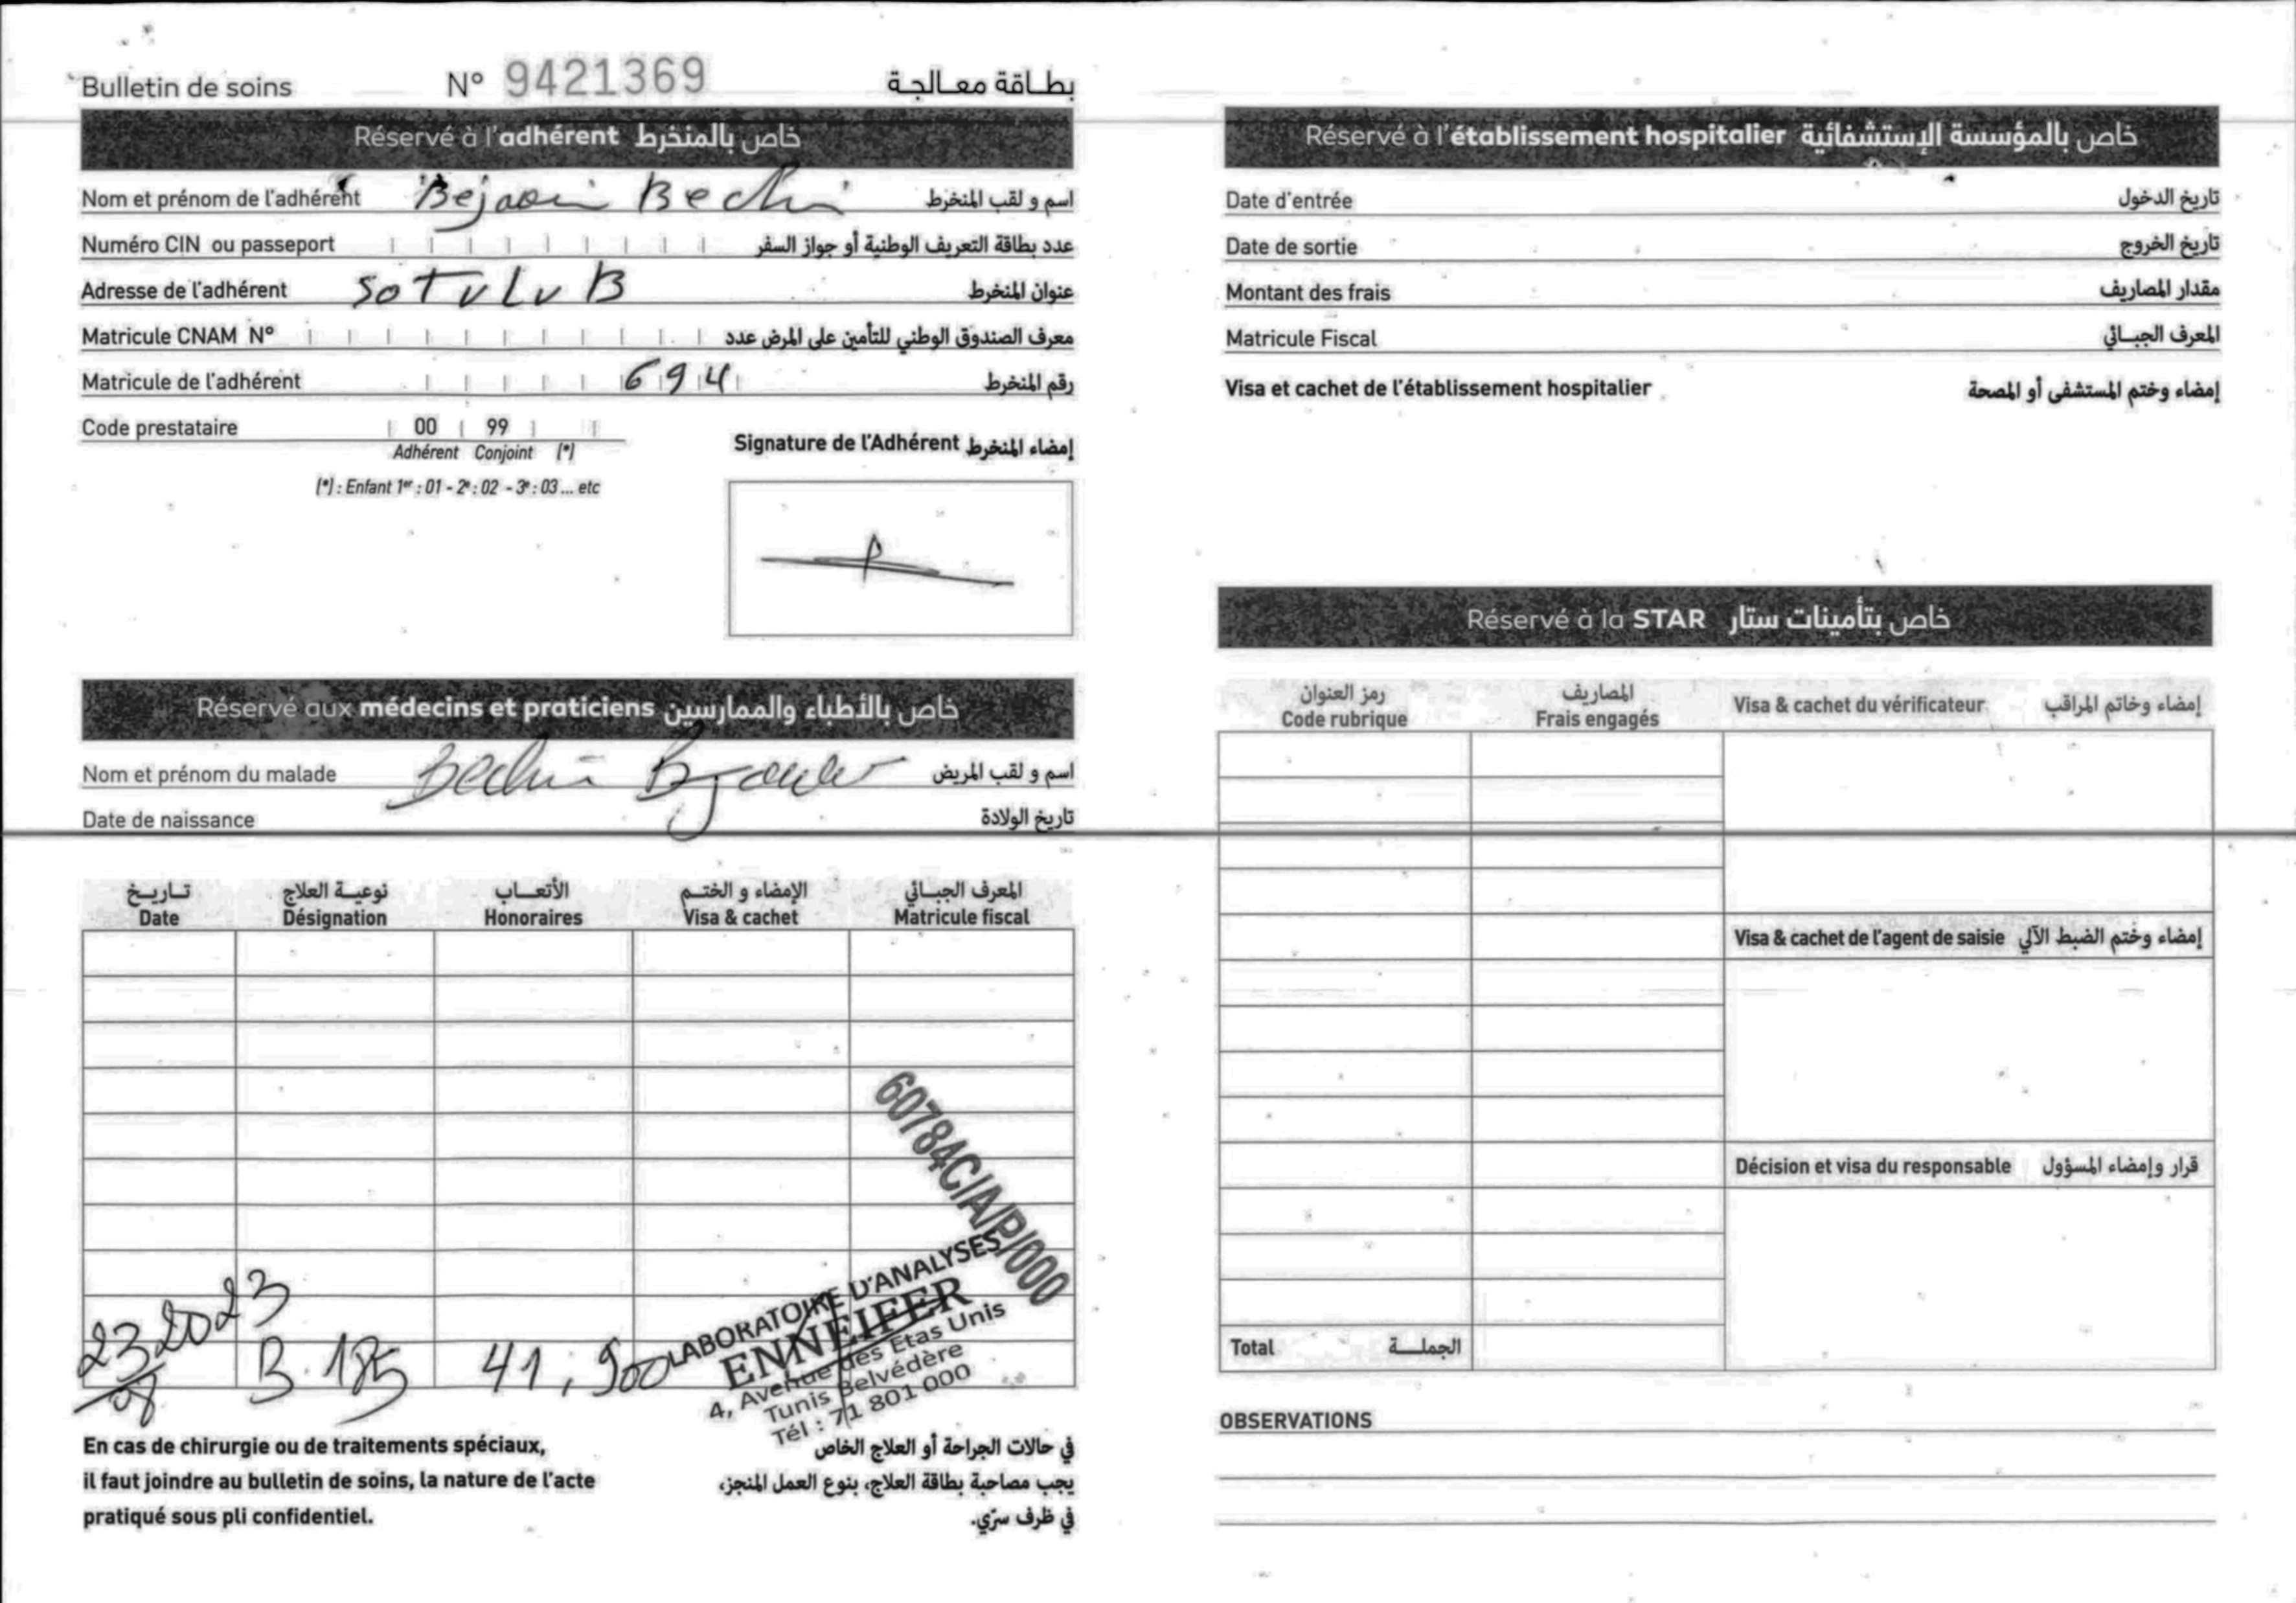 Bulletin de soins N° 9421369 بطاقة معالجة
Réservé à l'adhérent خاص بالمنخرط
Nom et prénom de l'adhérent Bejaoui Bechir اسم و لقب المنخرط
Numéro CIN ou passeport عدد بطاقة التعريف الوطنية أو جواز السفر
Adresse de l'adhérent SOTULUB عنوان المنخرط
Matricule CNAM N° معرف الصندوق الوطني للتأمين على المرض عدد
Matricule de l'adhérent 694 رقم المنخرط
Code prestataire 00 99
Adhérent Conjoint (*)
(*) : Enfant 1er : 01 - 2e : 02 - 3e : 03 ... etc
Signature de l'Adhérent إمضاء المنخرط
Réservé aux médecins et praticiens خاص بالأطباء والممارسين
Nom et prénom du malade Bechir اسم و لقب المريض
Date de naissance تاريخ الولادة
تاريخ نوعية العلاج الأتعاب الإمضاء و الختم المعرف الجبائي
Date Désignation Honoraires Visa & cachet Matricule fiscal
60784C/A/P/000
23 2023 08
B 185 41,900
LABORATOIRE D'ANALYSES
ENNEIFER
4, Avenue des Etas Unis
Tunis Belvédère
Tél : 71 801 000
En cas de chirurgie ou de traitements spéciaux,
il faut joindre au bulletin de soins, la nature de l'acte
pratiqué sous pli confidentiel.
في حالات الجراحة أو العلاج الخاص
يجب مصاحبة بطاقة العلاج، بنوع العمل المنجز،
في ظرف سرّي.
Réservé à l'établissement hospitalier خاص بالمؤسسة الإستشفائية
Date d'entrée تاريخ الدخول
Date de sortie تاريخ الخروج
Montant des frais مقدار المصاريف
Matricule Fiscal المعرف الجبائي
Visa et cachet de l'établissement hospitalier إمضاء وختم المستشفى أو المصحة
Réservé à la STAR خاص بتأمينات ستار
رمز العنوان المصاريف
Code rubrique Frais engagés Visa & cachet du vérificateur إمضاء وخاتم المراقب
Visa & cachet de l'agent de saisie إمضاء وختم الضبط الآلي
Décision et visa du responsable قرار وإمضاء المسؤول
Total الجملة
OBSERVATIONS